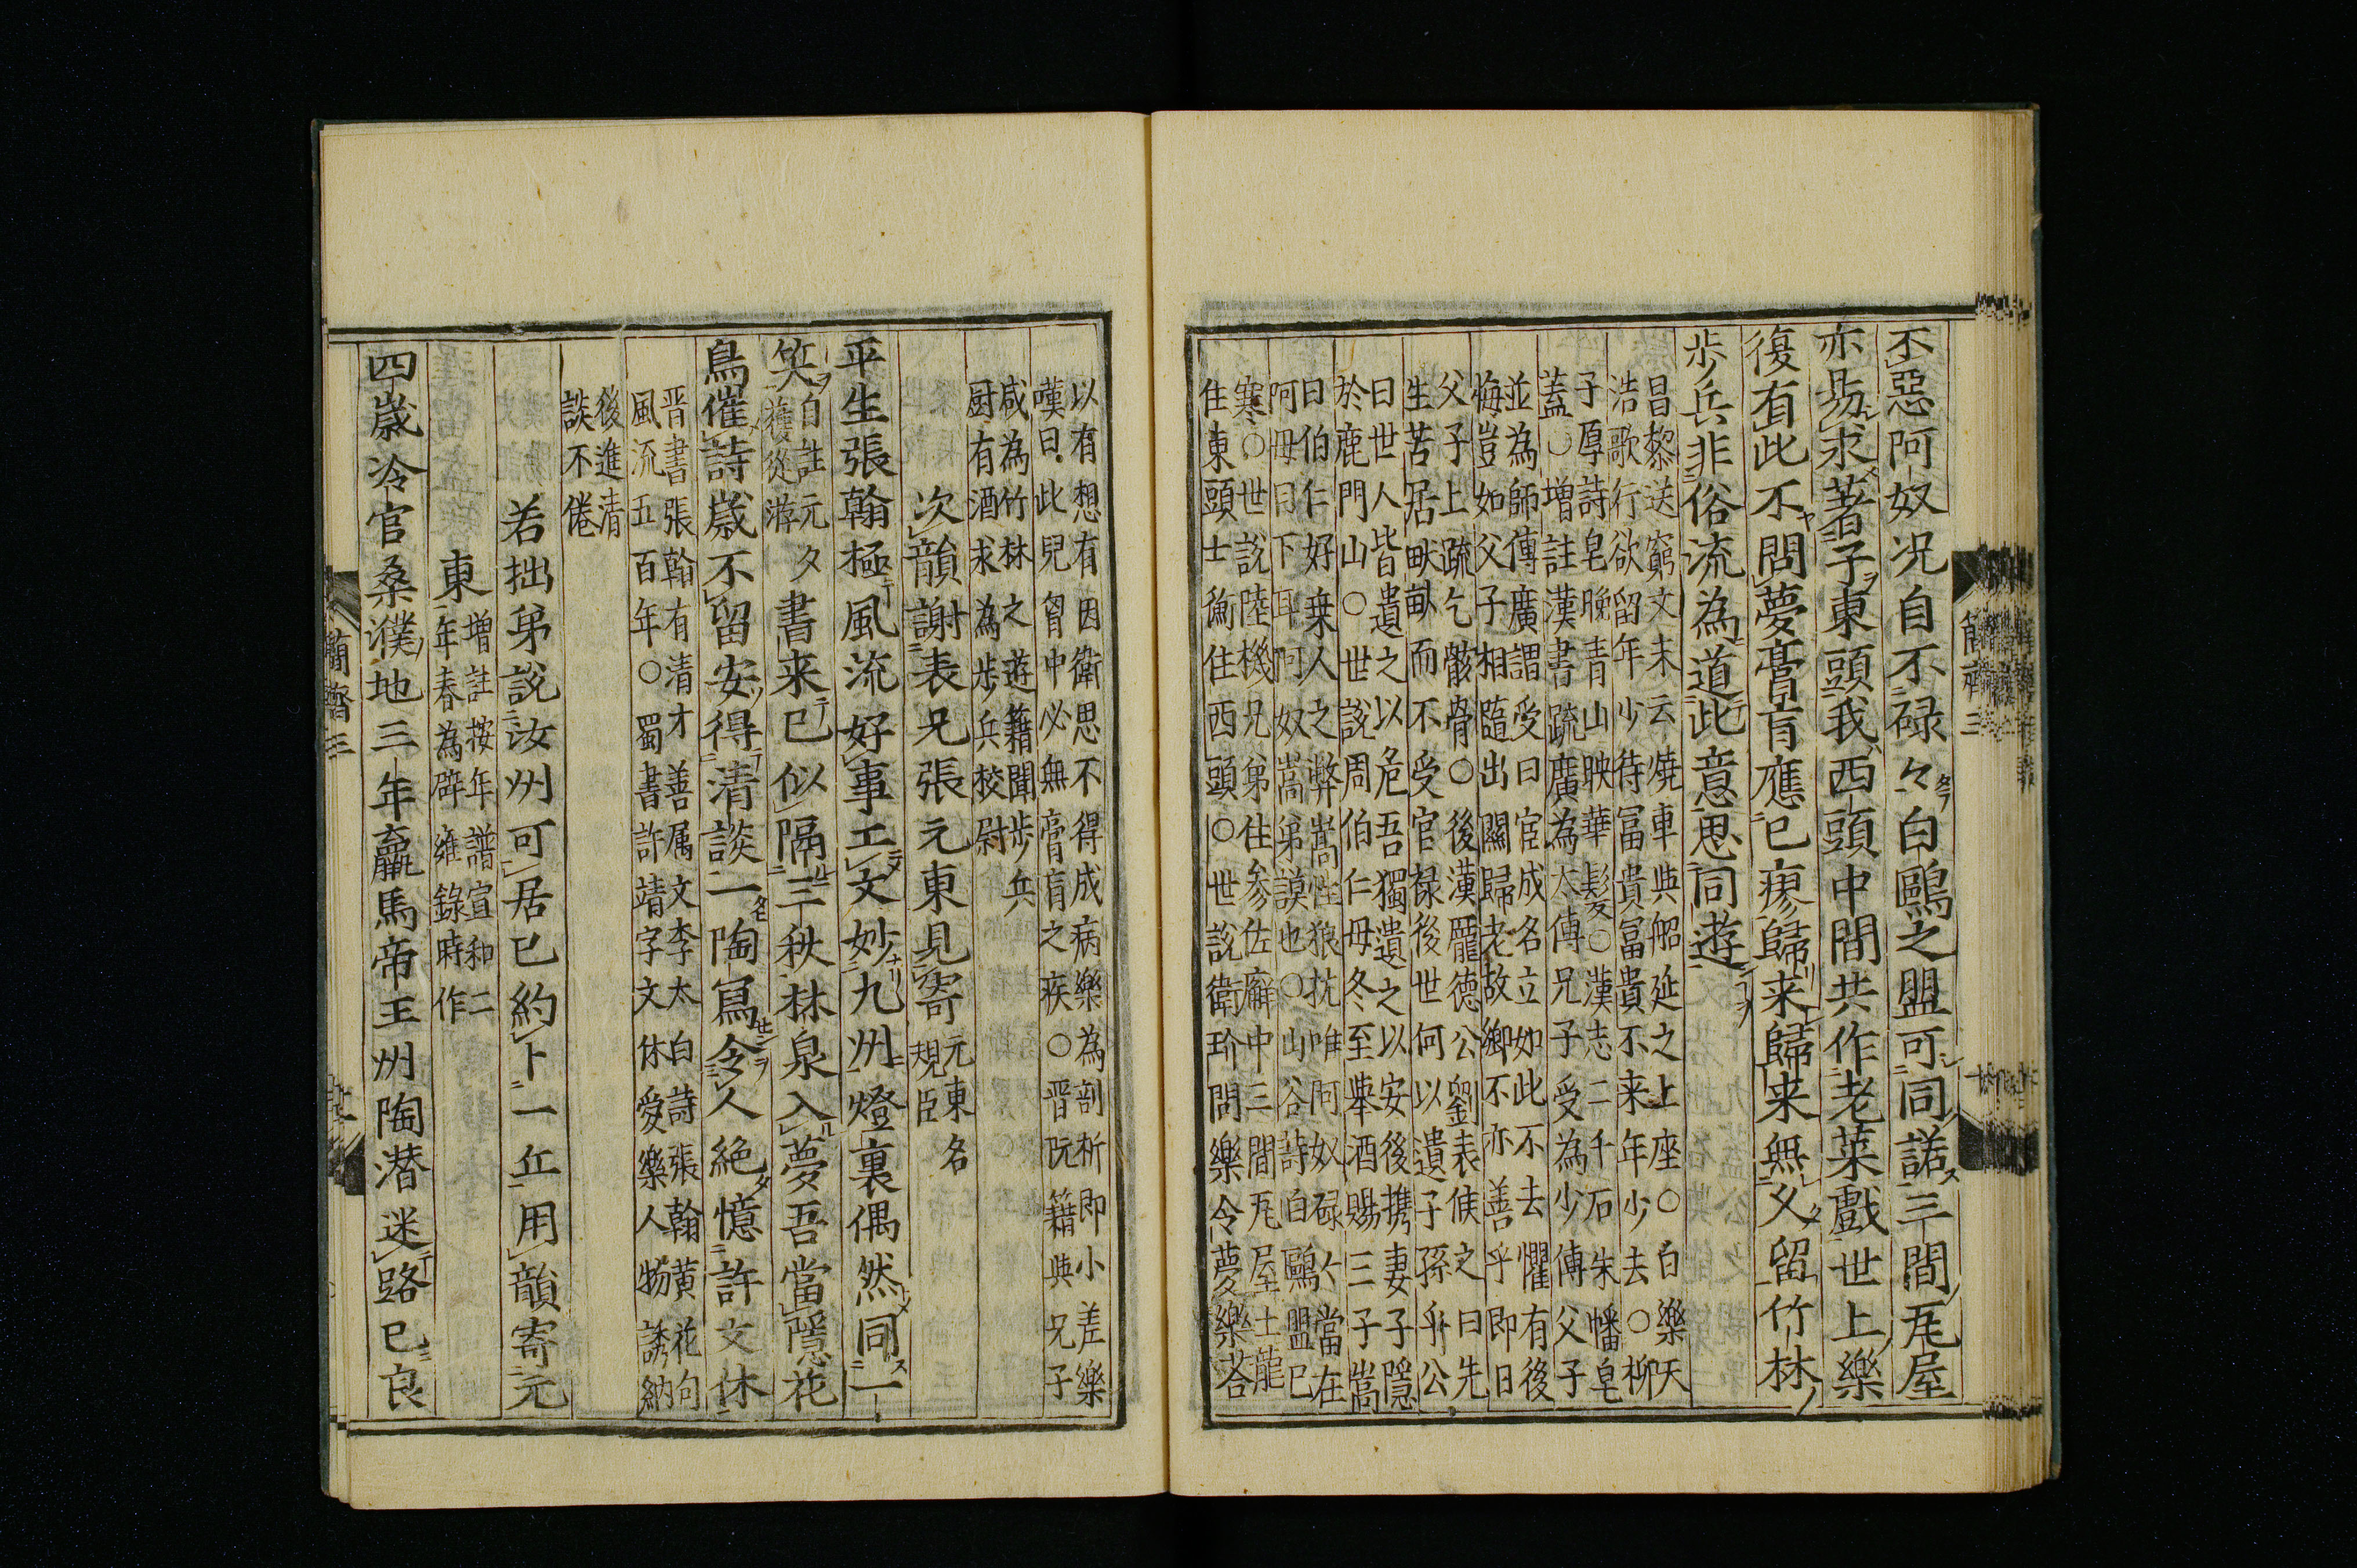 不惡阿奴況自不祿々白鷗之盟可同諾三間瓦屋
亦易求著子東頭我西頭中間共作老菜戲世上樂
復有此不問夢膏肓應已瘳歸来歸来無久留竹林
步兵非俗流為道此意思同遊
昌黎送窮文末云燒車與船延之上座○白樂天
浩歌行欲留年少待冨貴冨貴不来年少去○柳
子厚詩皂晚青山映華髪○漢志二千石朱幡皂
蓋○增註漢書疏廣為太傅兄子受為少傅父子
並為師傅廣謂受曰宦成名立如此不去懼有後
悔豈如父子相隨出關歸老故鄉不亦善乎即日
父子上疏乞骸骨○後漢龐德公劉表候之曰先
生苦居畎畝而不受官禄後世何以遺子孫乎公
曰世人皆遺之以危吾獨遺之以安後携妻子隱
於鹿門山○世說周伯仁母冬至舉酒賜三子嵩
曰伯仁好乗人之弊嵩性狼抗唯阿奴碌々當在
阿母目下耳阿奴嵩弟謨也○山谷詩白鷗盟已
寒○世說陸機兄弟住參佐廨中三間瓦屋士龍
住東頭士衡住西頭○世說衛玠問樂令夢樂荅
以有想有因衛思不得成病樂為剖析即小差樂
嘆曰此兒胷中必無膏肓之疾○晋阮籍與兄子
咸為竹林之遊籍聞步兵
厨有酒求為步兵校尉
次韻謝表兄張元東見寄
元東名
規臣
平生張翰極風流好事工文妙九州燈裏偶然同一
笑
自註元
獲從游
夕書来已似隔三秋林泉入夢吾當隱花
鳥催詩歲不留安得清談一陶寫令人絶憶許文休
晋書張翰有清才善属文李太白詩張翰黄花句
風流五百年○蜀書許靖字文休愛樂人物誘納
後進清
談不倦
若拙弟說汝州可居已約卜一丘用韻寄元
東
增註按年譜宣和二
年春為辟雍錄時作
四歲冷官桑濮地三年羸馬帝王州陶潜迷路已良
簡齋三